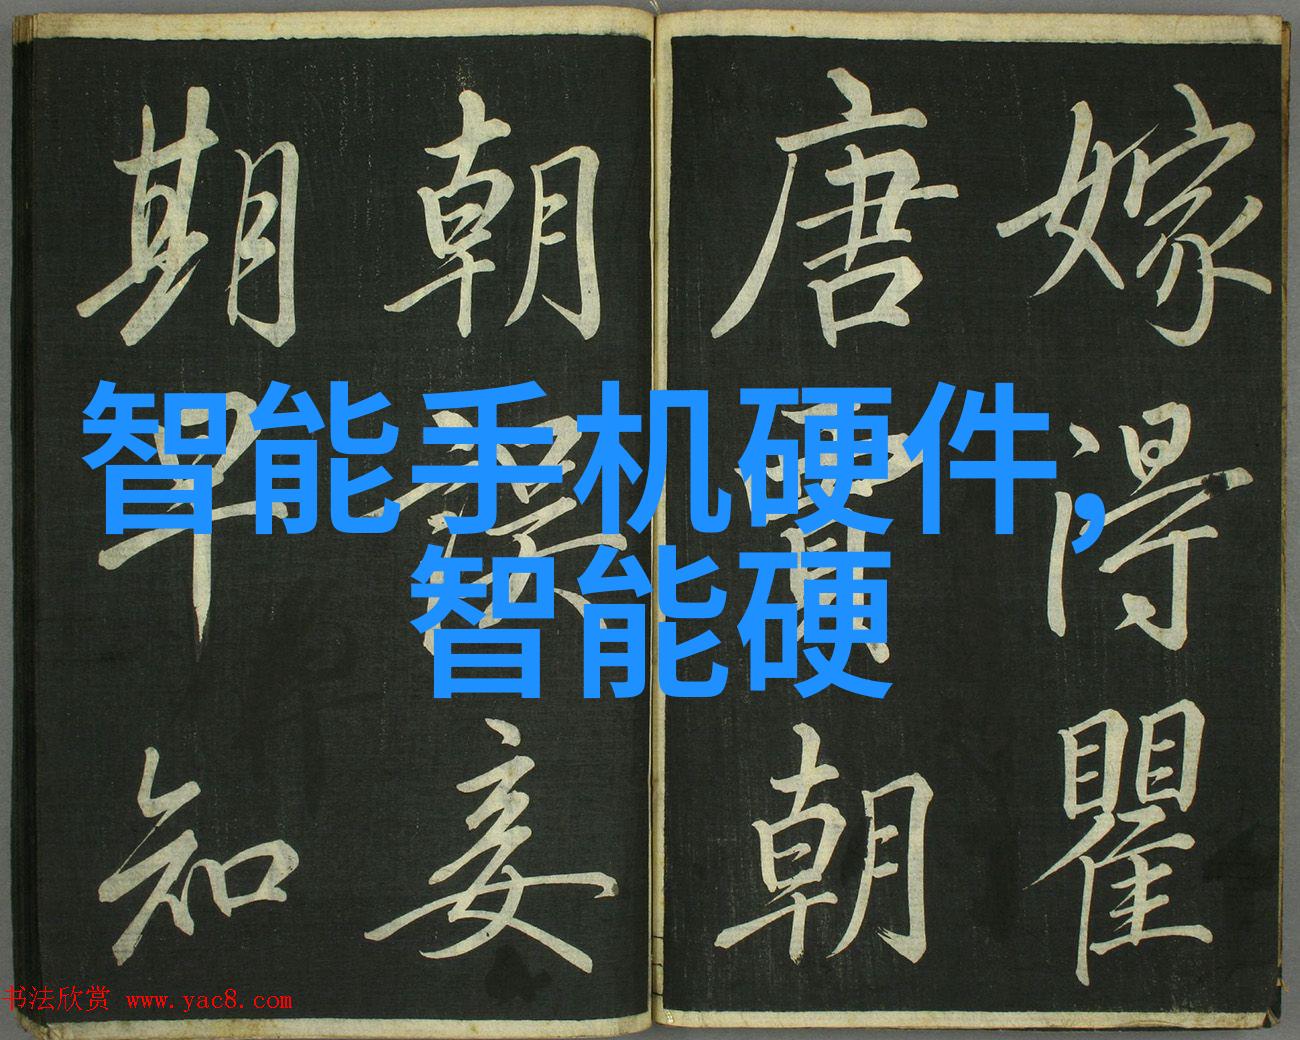 嫁得瞿
唐賈朝
朝誤妾
期早知
智能手机硬件,
智能硬
书法欣赏 www.yac8.com